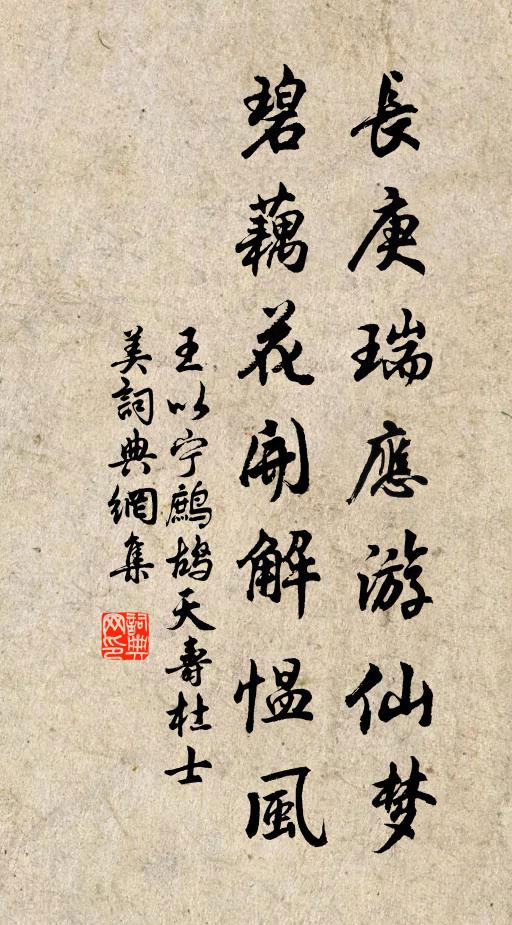 長庚瑞應游仙梦
碧藕花開解愠風
王以宁鷓鴣天壽杜士
美詞典網集
詞典
网印